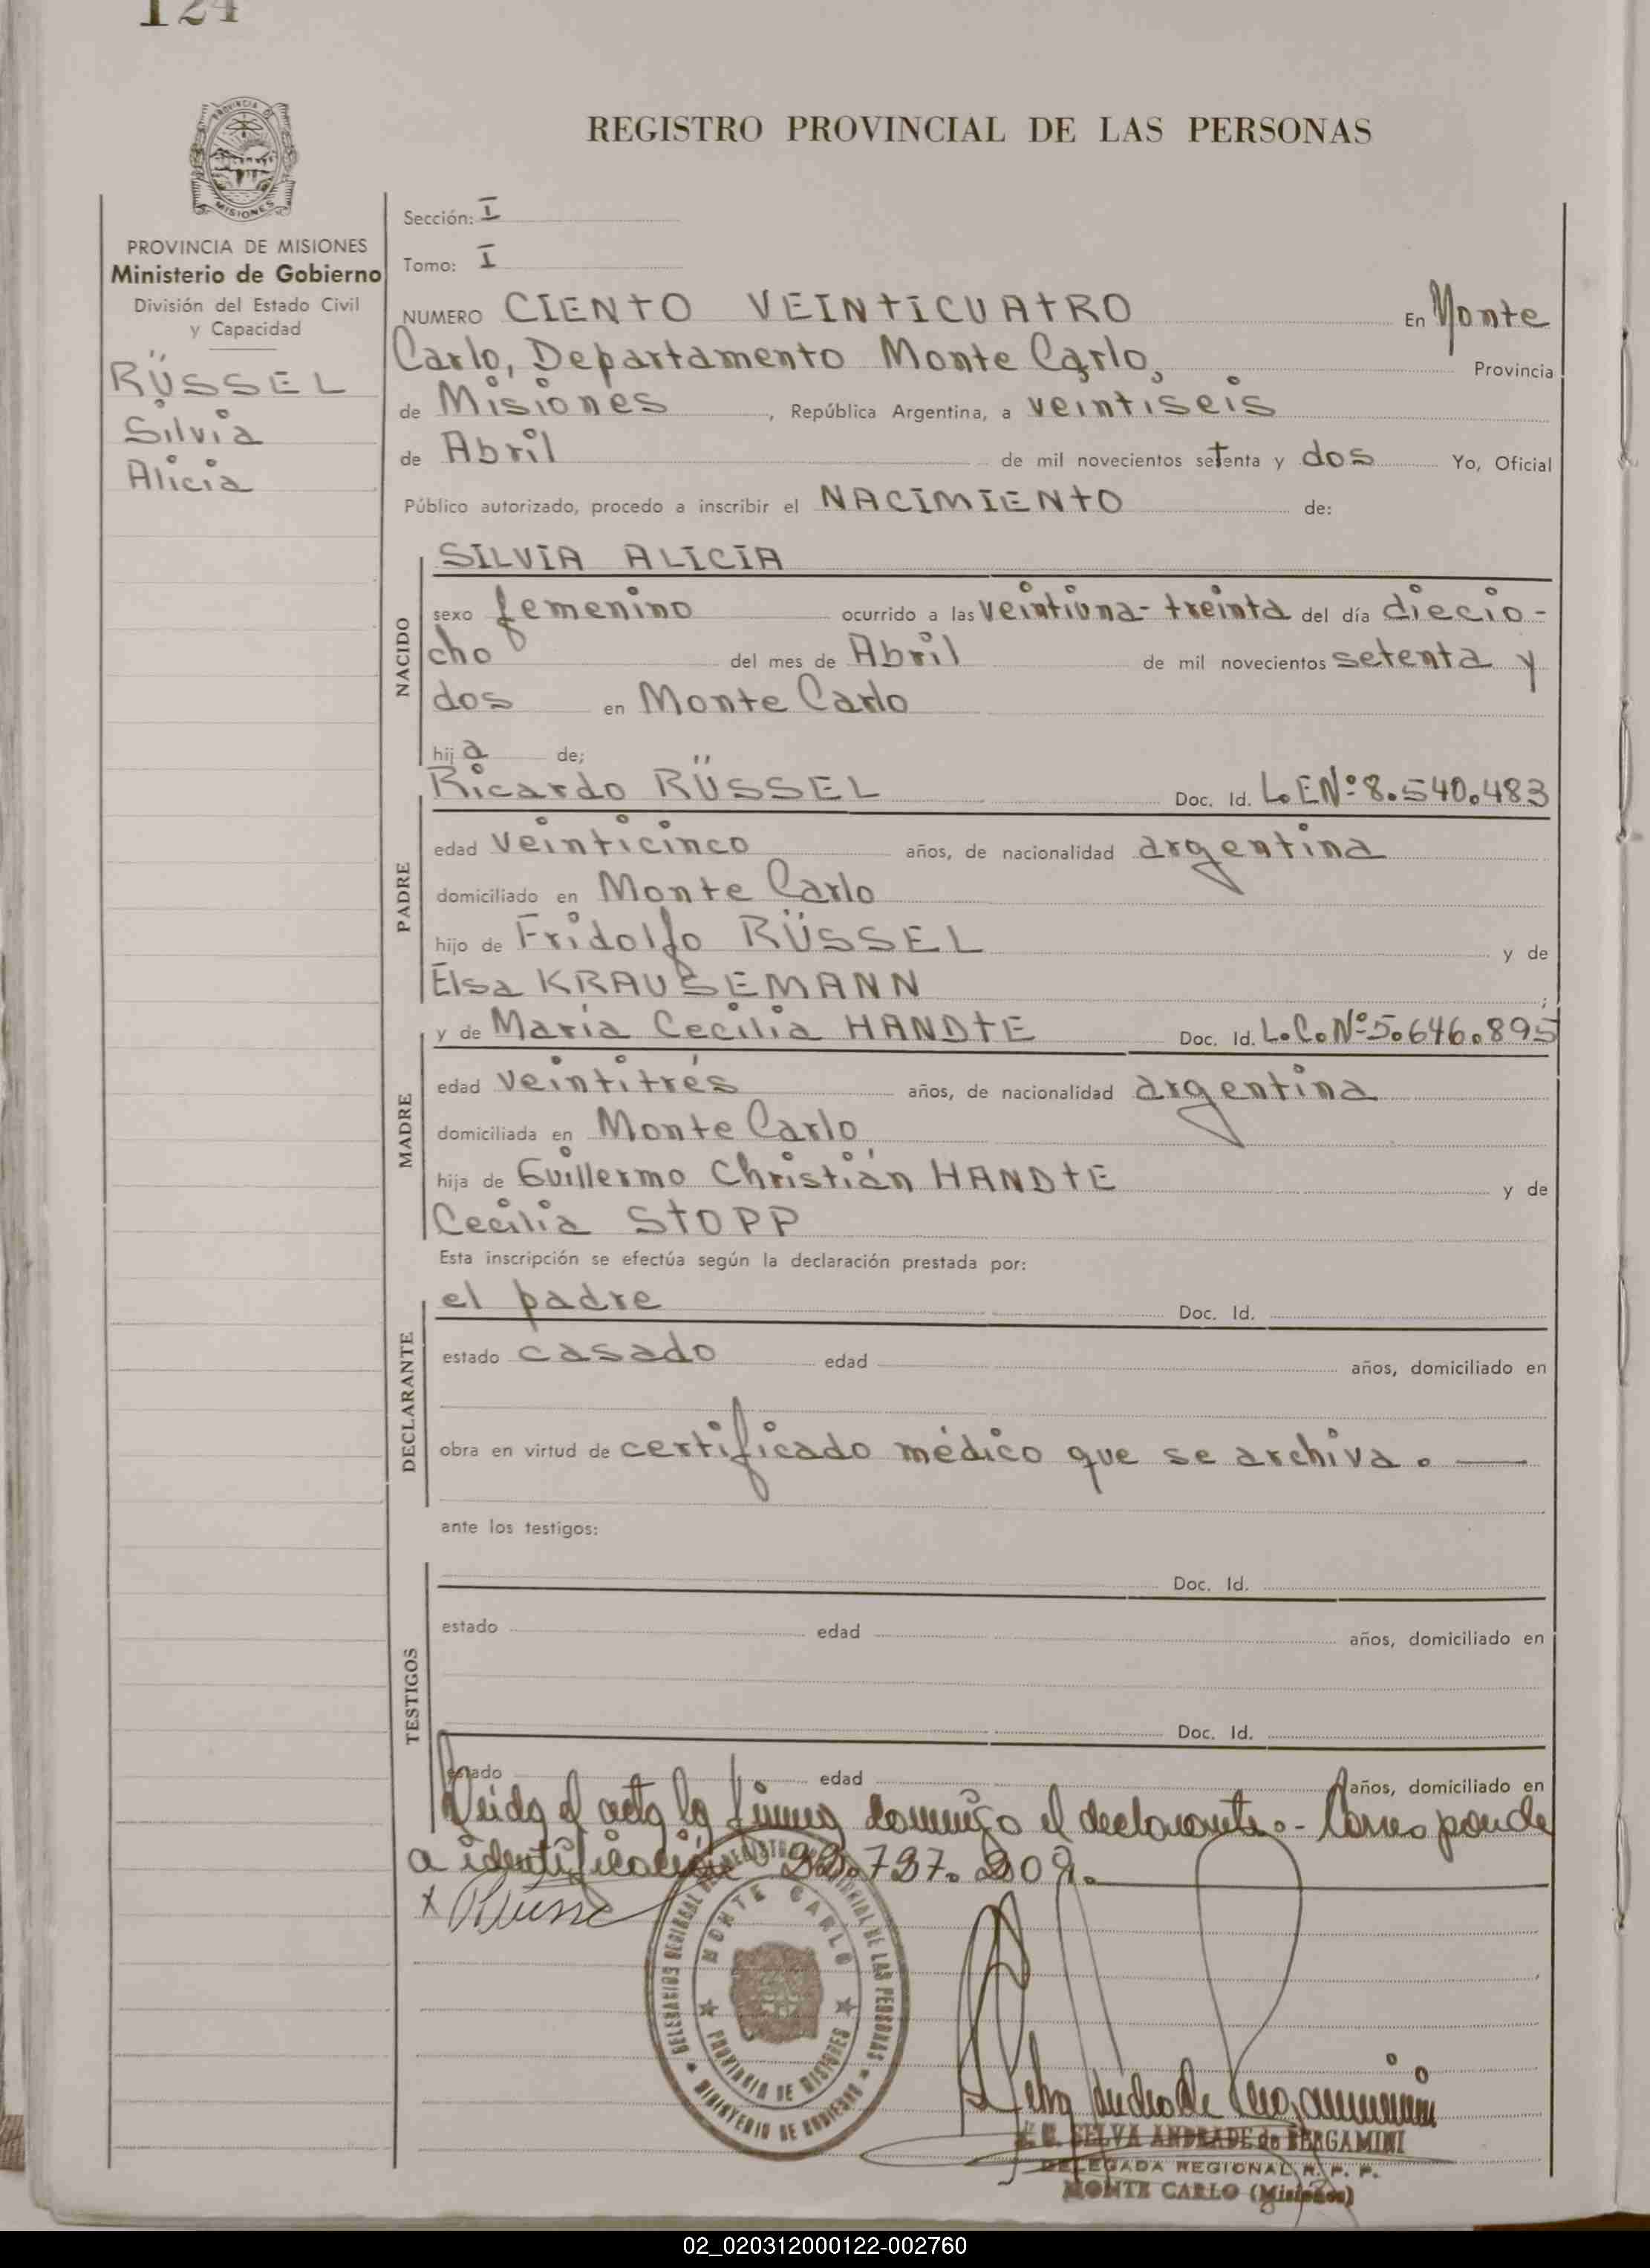 124
REGISTRO PROVINCIAL DE LAS PERSONAS
PROVINCIA DE MISIONES
Ministerio de Gobierno
División del Estado Civil
y Capacidad
RÜSSEL
Silvia
Alicia
Sección: I
Tomo: I
NUMERO CIENTO VEINTICUATRO En Monte
Carlo, Departamento Monte Carlo, Provincia
de Misiones, República Argentina, a veintiseis
de Abril de mil novecientos setenta y dos Yo, Oficial
Público autorizado, procedo a inscribir el NACIMIENTO de:
NACIDO
SILVIA ALICIA
sexo femenino ocurrido a las veintiuna-treinta del día diecio-
cho del mes de Abril de mil novecientos setenta y
dos en Monte Carlo
hija de;
PADRE
Ricardo RÜSSEL Doc. Id. L.EN° 8.540.483
edad veinticinco años, de nacionalidad argentina
domiciliado en Monte Carlo
hijo de Fridolfo RÜSSEL y de
Elsa KRAUSEMANN;
MADRE
y de María Cecilia HANDTE Doc. Id. L.C.N° 5.646.895
edad veintitrés años, de nacionalidad argentina
domiciliada en Monte Carlo
hija de Guillermo Christián HANDTE y de
Cecilia STOPP
Esta inscripción se efectúa según la declaración prestada por:
DECLARANTE
el padre Doc. Id.
estado casado edad años, domiciliado en
obra en virtud de certificado médico que se archiva.
ante los testigos:
TESTIGOS
Doc. Id.
estado edad años, domiciliado en
Doc. Id.
estado edad años, domiciliado en
Leida el acta la firma conmigo el declarante.- Corresponde
a identificación 22.737.209.
MONTE CARLO
PROVINCIA DE MISIONES
MINISTERIO DE GOBIERNO
SELVA ANDRADE de BERGAMINI
DELEGADA REGIONAL R. P. P.
MONTE CARLO (Misiones)
02_020312000122-002760